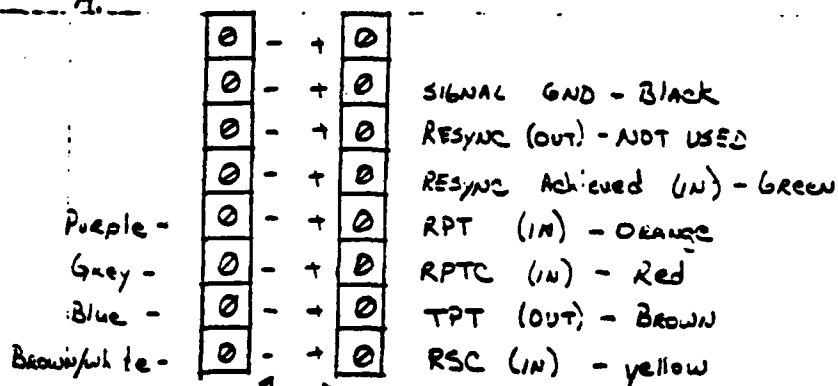 1.
- +
- + SIGNAL GND - Black
- + RESYNC (OUT) - NOT USED
- + RESYNC Achieved (IN) - GREEN
Purple - - + RPT (IN) - ORANGE
Grey - - + RPTC (IN) - Red
Blue - - + TPT (OUT) - BROWN
Brown/white - - + RSC (IN) - yellow